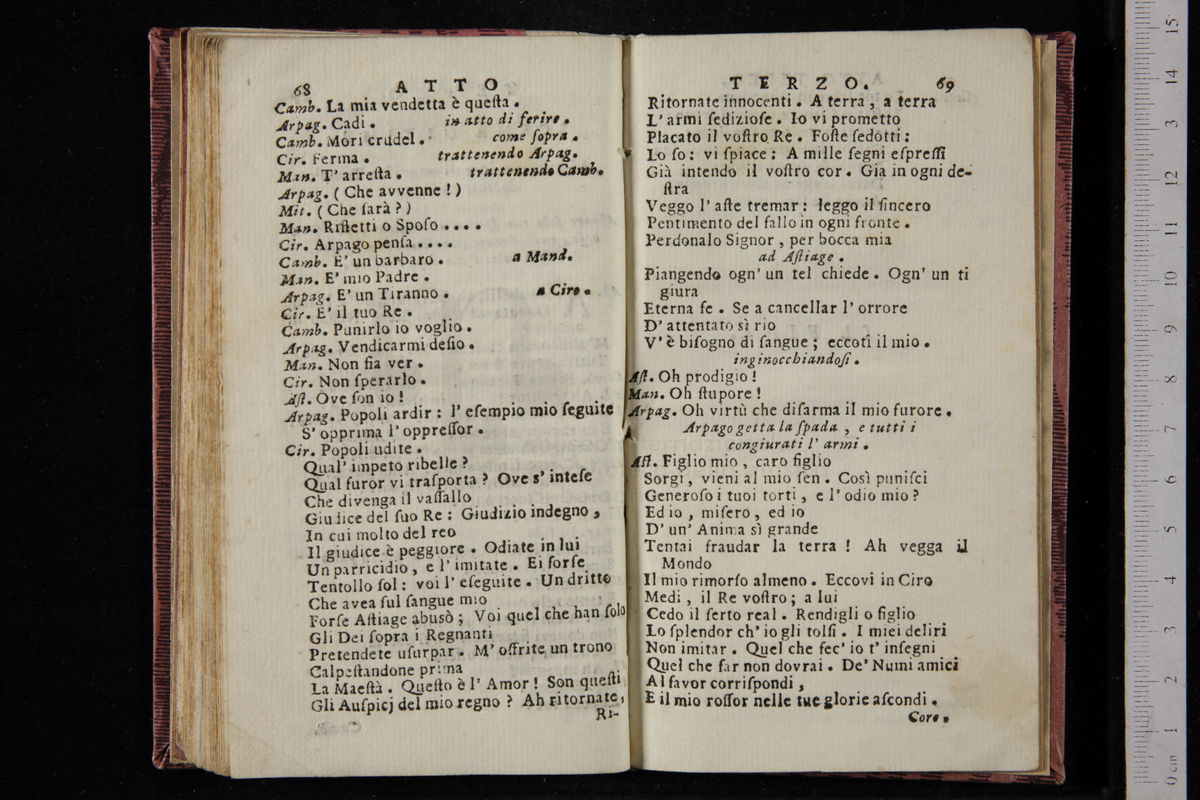 68 ATTO
Camb. La mia vendetta è queſta .
Arpag. Cadi . in atto di ferire .
Camb. Mori crudel . come ſopra .
Cir. Ferma . trattenendo Arpag.
Man. T' arreſta . trattenendo Camb.
Arpag. ( Che avvenne ! )
Mit. ( Che ſarà ? )
Man. Riſletti o Spoſo . . . .
Cir. Arpago penſa . . . .
Camb. E' un barbaro . a Mand.
Man. E' mio Padre .
Arpag. E' un Tiranno . a Ciro .
Cir. E' il tuo Re .
Camb. Punirlo io voglio .
Arpag. Vendicarmi deſio .
Man. Non fia ver .
Cir. Non ſperarlo .
Aſt. Ove ſon io !
Arpag. Popoli ardir : l' eſempio mio ſeguite
S' opprima l' oppreſſor .
Cir. Popoli udite .
Qual' impeto ribelle ?
Qual furor vi traſporta ? Ove s' inteſe
Che divenga il vaſſallo
Giudice del ſuo Re : Giudizio indegno ,
In cui molto del reo
Il giudice è peggiore . Odiate in lui
Un parricidio , e l' imitate . Ei forſe
Tentollo ſol : voi l' eſeguite . Un dritto
Che avea ſul ſangue mio
Forſe Aſtiage abusò ; Voi quel che han ſolo
Gli Dei ſopra i Regnanti
Pretendete uſurpar . M' offrite un trono
Calpeſtandone prima
La Maeſtà . Queſto è l' Amor ! Son queſti
Gli Auſpicj del mio regno ? Ah ritornate ,
Ri-
TERZO. 69
Ritornate innocenti . A terra , a terra
L' armi ſedizioſe . Io vi prometto
Placato il voſtro Re . Foſte ſedotti :
Lo ſo : vi ſpiace : A mille ſegni eſpreſſi
Già intendo il voſtro cor . Gia in ogni de-
ſtra
Veggo l' aſte tremar : leggo il ſincero
Pentimento del fallo in ogni fronte .
Perdonalo Signor , per bocca mia
ad Aſtiage .
Piangendo ogn' un tel chiede . Ogn' un ti
giura
Eterna fe . Se a cancellar l' orrore
D' attentato sì rio
V' è biſogno di ſangue ; eccoti il mio .
inginocchiandoſi .
Aſt. Oh prodigio !
Man. Oh ſtupore !
Arpag. Oh virtù che diſarma il mio furore .
Arpago getta la ſpada , e tutti i
congiurati l' armi .
Aſt. Figlio mio , caro figlio
Sorgi , vieni al mio ſen . Così puniſci
Generoſo i tuoi torti , e l' odio mio ?
Ed io , miſero , ed io
D' un' Anima sì grande
Tentai fraudar la terra ! Ah vegga il
Mondo
Il mio rimorſo almeno . Eccovi in Ciro
Medi , il Re voſtro ; a lui
Cedo il ſerto real . Rendigli o figlio
Lo ſplendor ch' io gli tolſi . I miei deliri
Non imitar . Quel che fec' io t' inſegni
Quel che far non dovrai . De' Numi amici
Al favor corriſpondi ,
E il mio roſſor nelle tue glorie aſcondi .
Coro .